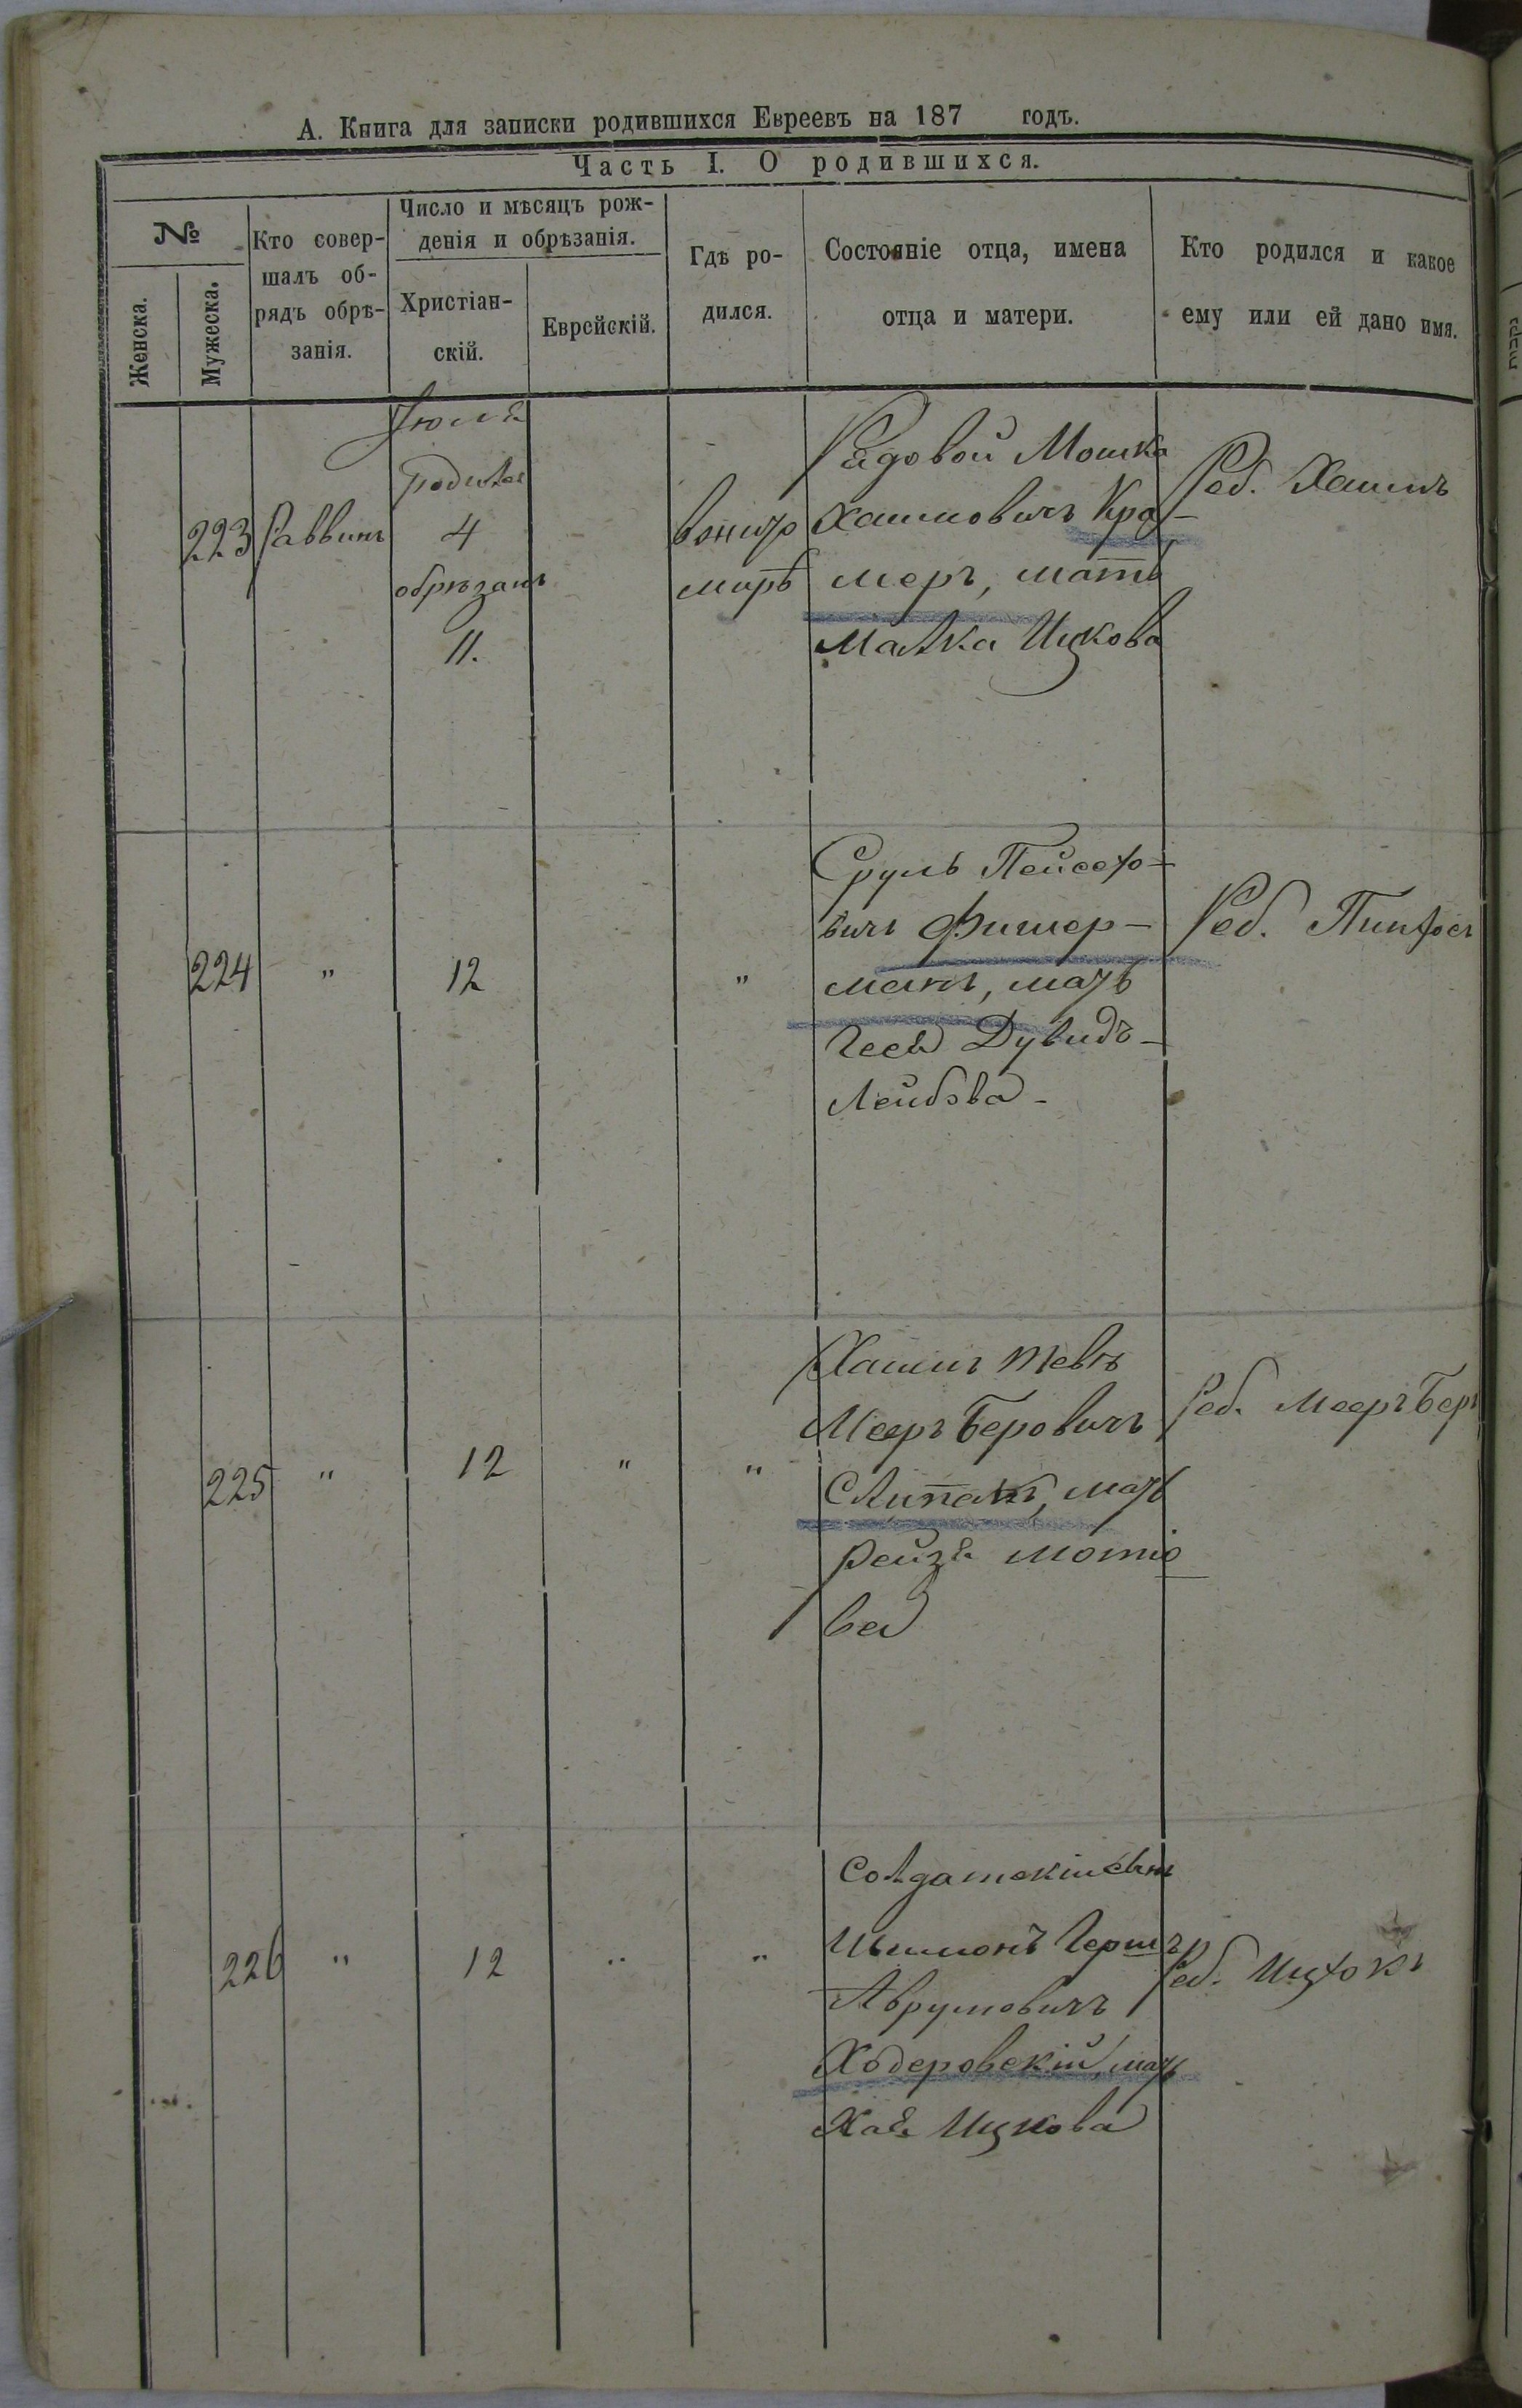 А. Книга для записки родившихся Евреевъ на 187 годъ.
Часть I. О родившихся.
№
Женска.
Мужеска.
Кто совер-
шалъ об-
рядъ обрѣ-
занія.
Число и мѣсяцъ рож-
денія и обрѣзанія.
Христіан-
скій.
Еврейскій.
Гдѣ ро-
дился.
Состояніе отца, имена
отца и матери.
Кто родился и какое
ему или ей дано имя.
Іюля
родился
223 Раввинъ 4
обрѣзанъ
11.
мирѣ
Рядовой Мошка
Хаимовичъ Кра-
меръ, мать
Малка Ицкова
Реб. Хаимъ
224 " 12 "
Сруль Пейсахо-
вичъ Фишер-
манъ, мать
Дувидъ-
Лейбова-
Реб. Пинхосъ
225 " 12 " "
Хаимъ
Мееръ Беровичъ
Слипакъ, мать
Рейзя Мотіо
ва
Реб. Мееръ Беръ
226 " 12 " "
Солдатскій сынъ
Шимонъ Гершъ
Аврумовичъ
Ходеровскій, мать
Хая Ицкова
Реб. Ицхокъ